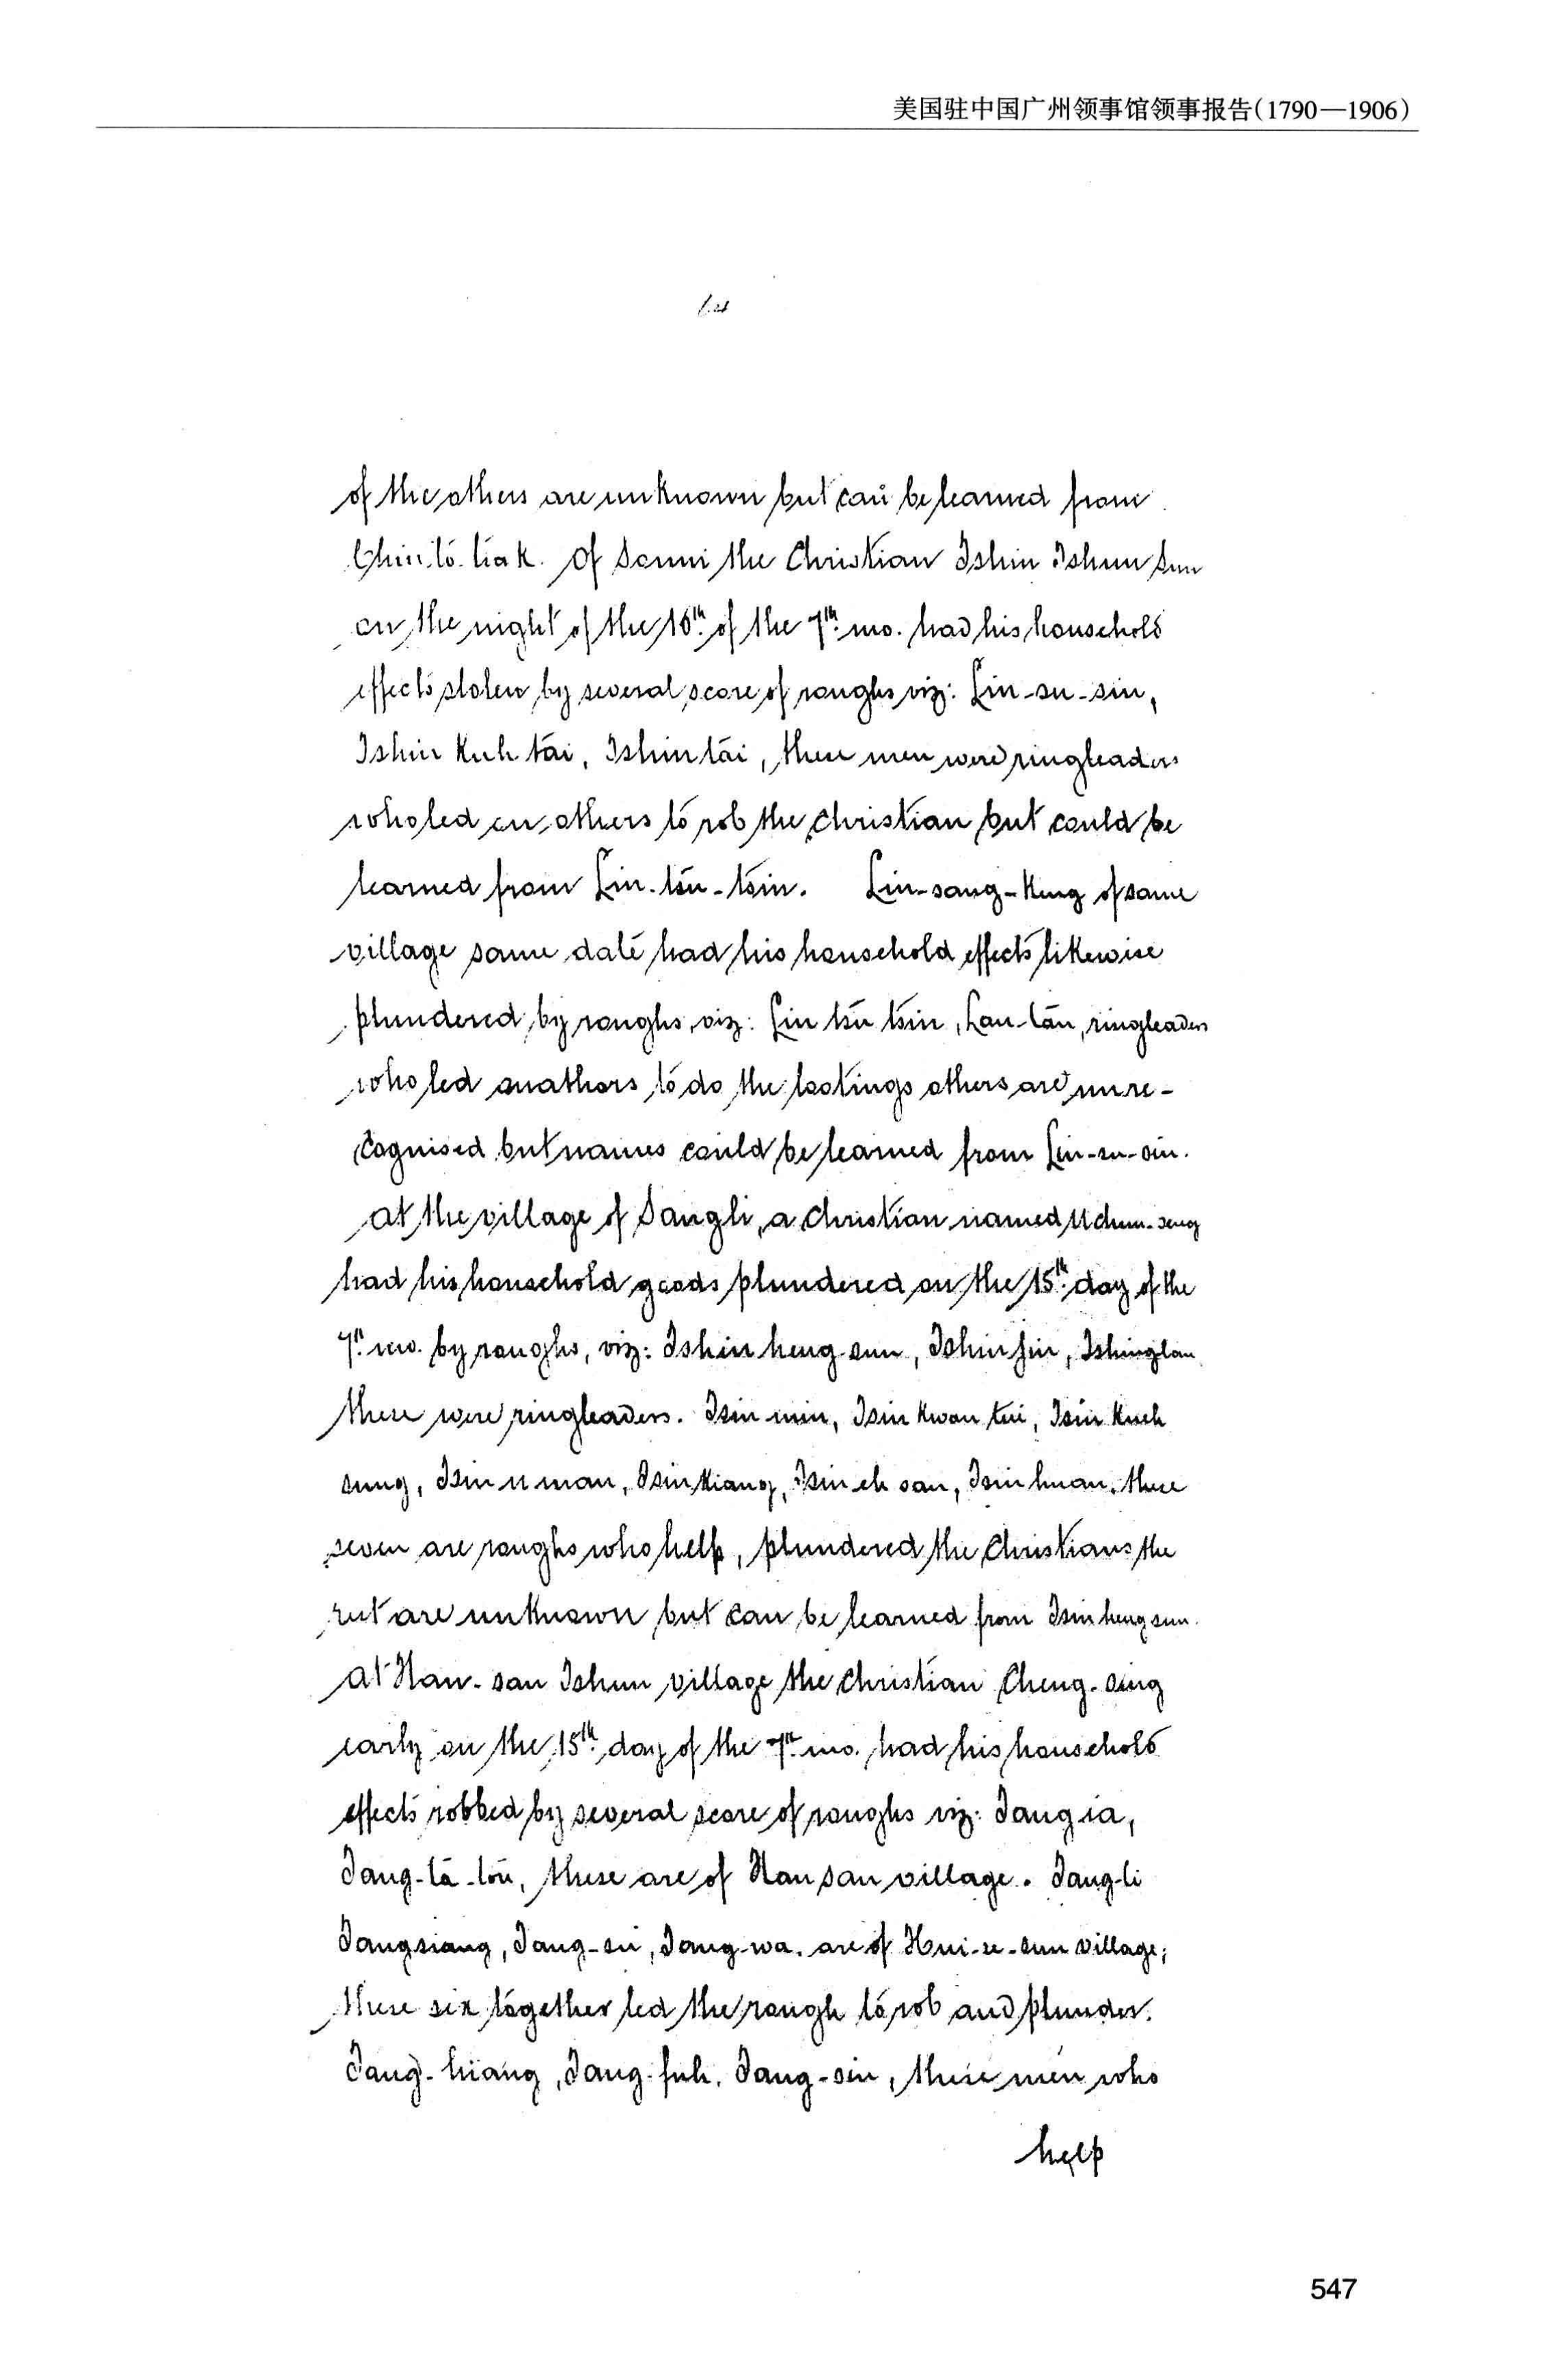 美国驻中国广州领事馆领事报告(1790—1906)
of the others are unknown but can be learned from
Chin. tô. liak. Of Sanni the Christian Tshin Tshun Sun
on the night of the 10th of the 7th mo. had his household
effects stolen by several score of roughs viz: Lin-su-sin,
Tshin Kuh tai, Tshin tāi, these men were ringleaders
who led on others to rob the Christian but could be
learned from Lin-tsu-tsin. Lin-sang-Keng of same
village same date had his household effects likewise
plundered by roughs, viz: Lin tsū tsin, Lau-lān, ringleaders
who led on others to do the lootings others are unre-
cognised but names could be learned from Lin-su-sin.
At the village of Sangli, a Christian named U chun-seng
had his household goods plundered on the 15th day of the
7th mo. by roughs, viz: Tshin heng sun, Tshin jin, Tshinglan
these were ringleaders. Tsin min, Tsin Kwan tui, Tsin Kueh
sung, Tsin u man, Tsin Kiang, Tsin eh san, Tsin huan, these
seven are roughs who help, plundered the Christians the
rest are unknown but can be learned from Tsin heng sun.
At Nan-san Tshun village the Christian Cheng-sing
early on the 15th day of the 7th mo. had his household
effects robbed by several score of roughs viz: Tang ia,
Tang-tā-lōu, these are of Nan san village. Tang-li
Tangsiang, Tang-su, Tang-wa. are of Hui-se-sun village;
these six together led the rough to rob and plunder.
Tang-hiang, Tang-fuh, Tang-sin, these men who
help
547